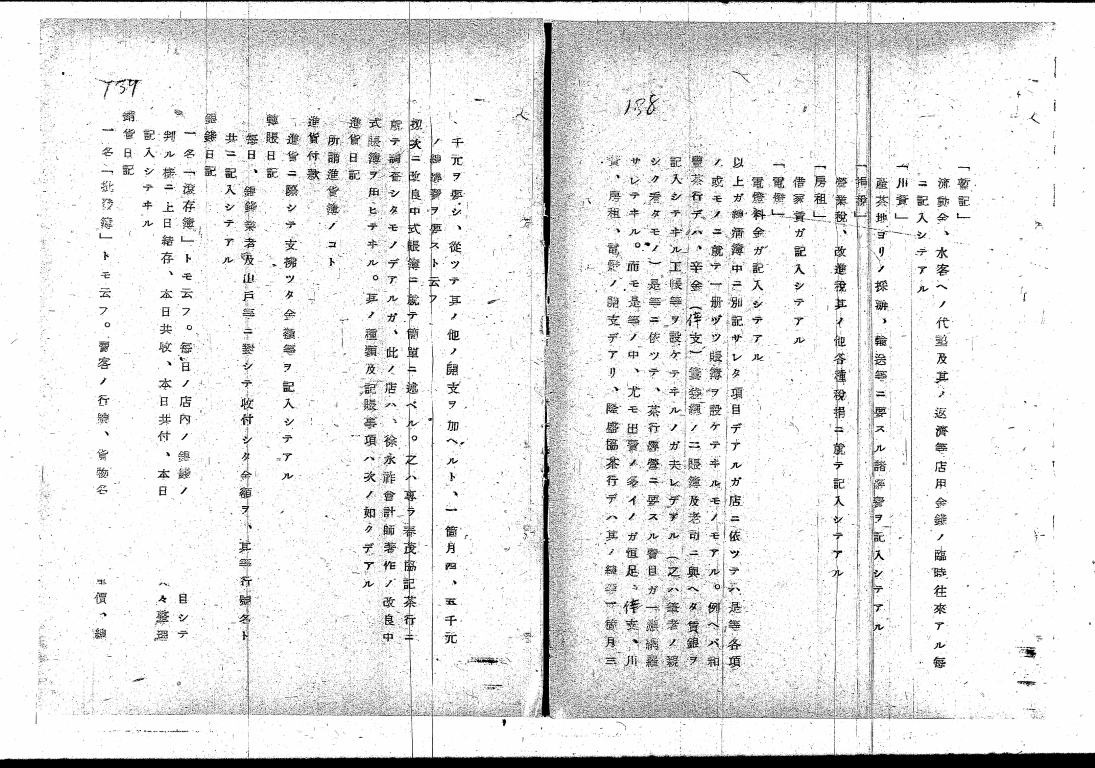 138
「暫記」
流動金、水客ヘノ代墊及其ノ返濟等店用金錢ノ臨時往來アル每
ニ記入シテアル
「川資」
產茶地ヨリノ採辦、輸送等ニ要スル諸雜費ヲ記入シテアル
「捐稅」
營業稅、改進稅其ノ他各種稅捐ニ就テ記入シテアル
「房租」
借家賃ガ記入シテアル
「電燈」
電燈料金ガ記入シテアル
以上ガ總淸簿中ニ別記サレタ項目デアルガ店ニ依ツテハ是等各項
ノ或モノニ就テ一册ヅツ賬簿ヲ設ケテヰルモノモアル。例ヘバ和
豐茶行デハ、辛金(俸支)ノ二賬簿及老司ニ與ヘタ賃銀ヲ
記入シテヰル工賬等ヲ設ケテヰルノガ夫レデアル(之ハ筆者ノ親
シク看タモノ)是等ニ依ツテ、茶行經營ニ要スル費目ガ一應網羅
サレテヰル。而モ是等ノ中、尤モ出費ノ多イノガ恒足、俸支、川
資、房租、電燈ノ開支デアリ、隆盛協茶行デハ其ノ總額一箇月三
139
千元ヲ要シ、從ツテ其ノ他ノ開支ヲ加ヘルト、一箇月四、五千元
ノ經費ヲ要スト云フ
扨次ニ改良中式賬簿ニ就テ簡單ニ述ベル。之ハ專ラ春茂協記茶行ニ
就テ調査シタモノデアルガ、此ノ店ハ、徐永祚會計師著作ノ改良中
式賬簿ヲ用ヒテヰル。其ノ種類及記賬事項ハ次ノ如クデアル
進貨日記
所謂進貨簿ノコト
進貨付款
進貨ニ際シテ支拂ツタ金額等ヲ記入シテアル
轉賬日記
每日、錢錢業者及山戶等ニ對シテ收付シタ金額ヲ、其等行號名ト
共ニ記入シテアル
銀錢日記
一名「滾存簿」トモ云フ。每日ノ店內ノ銀錢ノ 目シテ
判ル樣ニ上日結存、本日共收、本日共付、本日 々整理
記入シテヰル
銷貨日記
一名「批發簿」トモ云フ。賣客ノ行號、貨物名 單價、總